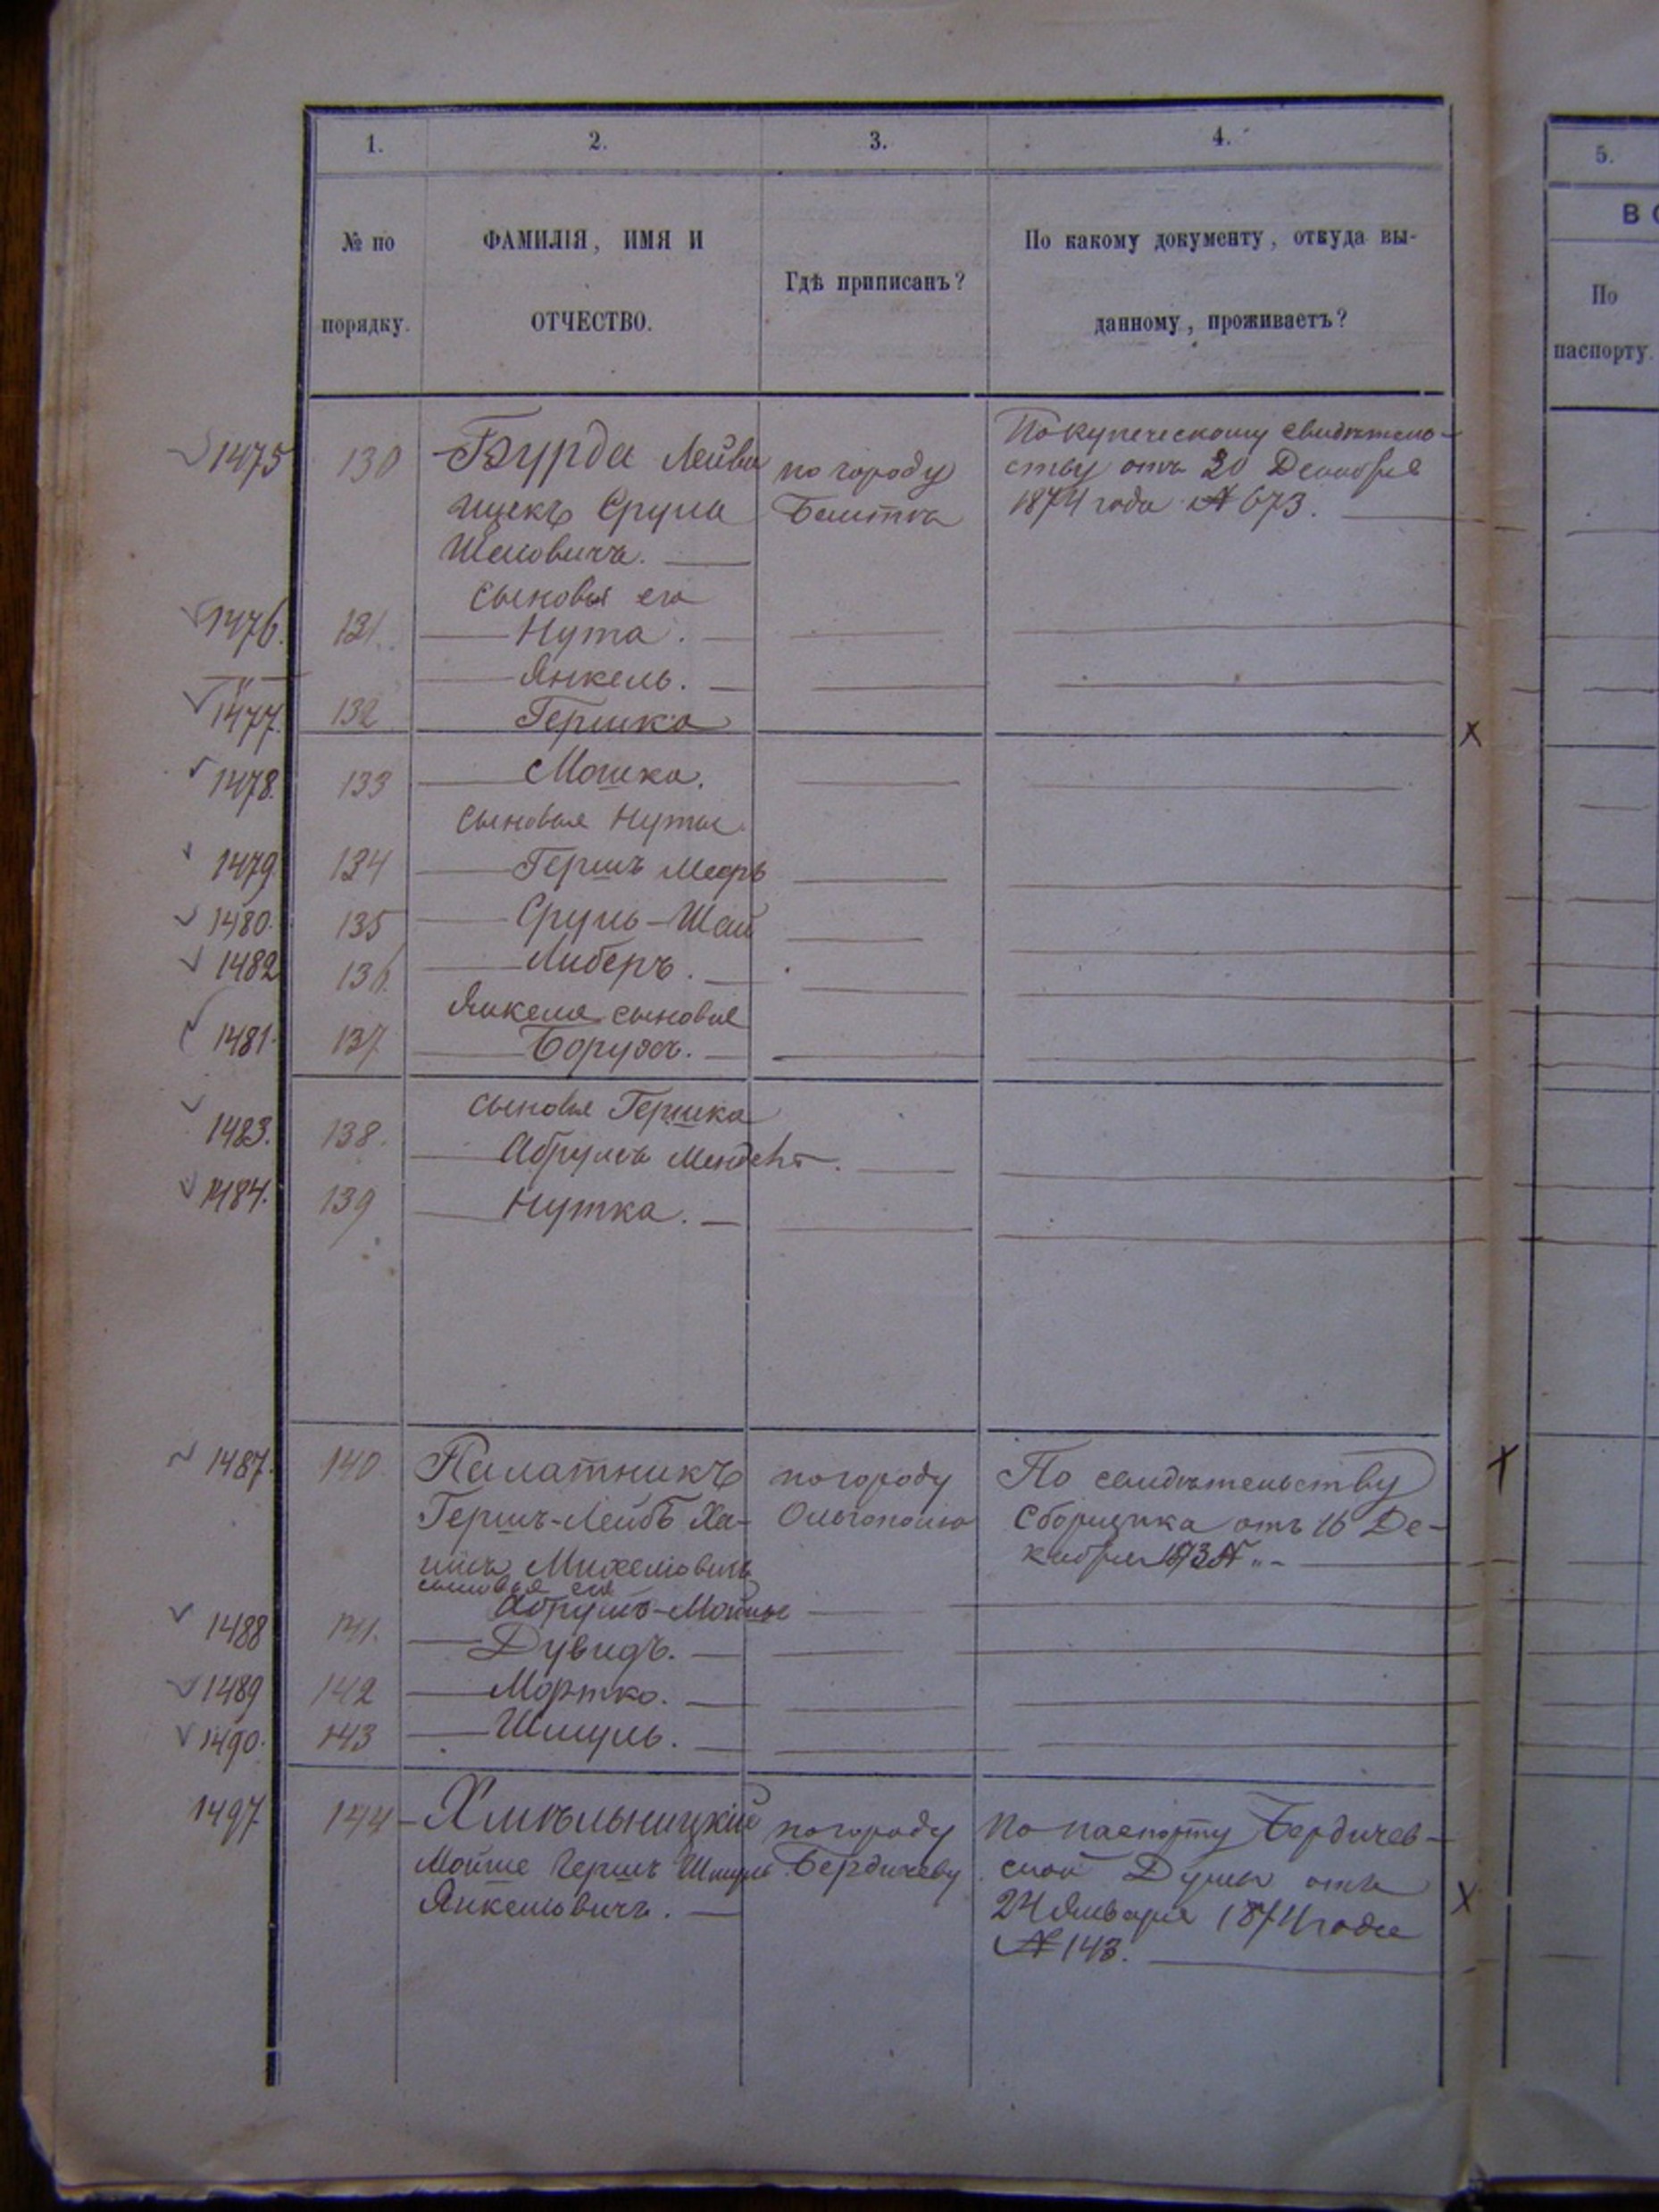 1. 2. 3. 4. 5.
№ по ФАМИЛІЯ, ИМЯ И Гдѣ приписанъ? По какому документу, откуда вы-
порядку. ОТЧЕСТВО. данному, проживаетъ?
По
паспорту.
1475 130 Бурда Лейба по городу По купеческому свидѣтель-
Ицекъ Срула Балта ству отъ 20 Декабря
Шаиовичъ. 1874 года № 673.
сыновья его
1476. 131. Нута.
Янкель.
1477. 132 Гершка
1478. 133 Мошка.
сыновья Нуты
1479 134 Гершъ Мееръ
1480. 135 Сруль-Шая
1482 136. Либеръ.
Янкеля сыновья
1481. 137 Борухъ.
сыновья Гершка
1483. 138. Абрумъ Мендель.
1484. 139 Нутка.
1487. 140. Палатникъ по городу По свидѣтельству
Гершъ-Лейбъ Ха- Ольгополю Сборщика отъ 16 Де-
имъ Михелювичъ кабря 1873 № „-
сыновья его
Абрумъ-Мойше
1488 141. Дувидъ.
1489 142 Мортко.
1490. 143 Шмуль.
1497 144 Хмѣльницкій по городу По паспорту Бердичев-
Мойше Гершъ Шмуль Бердичеву ской Думы отъ
Янкелювичъ. 24 Января 1874 года
№ 143.